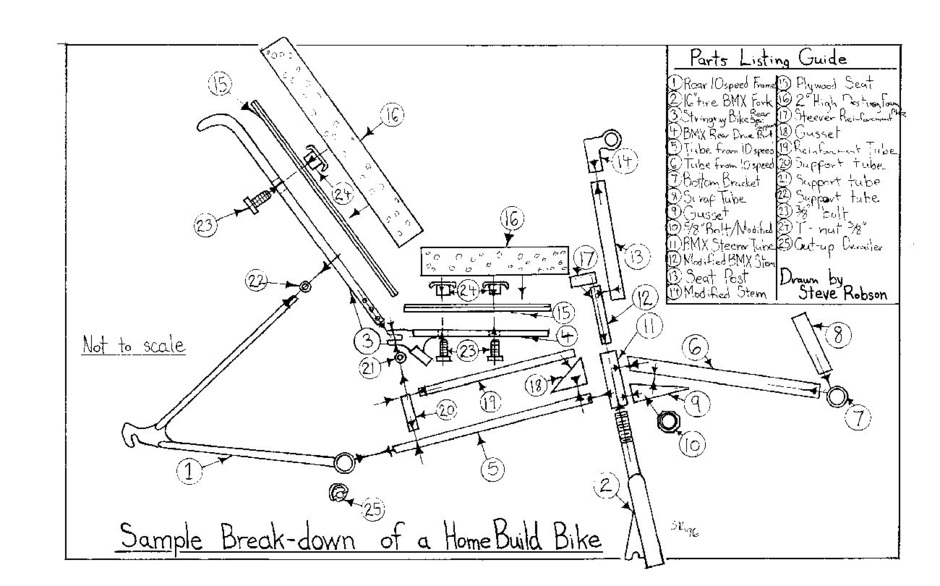 Parts Listing Guide
① Rear 10 speed Frame
② 16" tire BMX Fork
③ Stringray Bike Rear
④ BMX Rear Drop Out
⑤ Tube from 10 speed
⑥ Tube from 10 speed
⑦ Bottom Bracket
⑧ Scrap Tube
⑨ Gusset
⑩ 5/8" Bolt/Modified
⑪ BMX Steerer Tube
⑫ Modified BMX Stem
⑬ Seat Post
⑭ Modified Stem
⑮ Plywood Seat
⑯ 2" High Density Foam
⑰ Steever Reinforcement
⑱ Gusset
⑲ Reinforcement Tube
⑳ Support tube
㉑ Support tube
㉒ Support tube
㉓ 3/8" bolt
㉔ T-nut 3/8"
㉕ Cut-up Derailer
Drawn by
Steve Robson
15
16
14
24
23
16
17
13
22
24
12
15
11
8
3
4
6
Not to scale
21
23
18
19
9
20
7
10
1
5
2
25
SR 96
Sample Break-down of a Home Build Bike